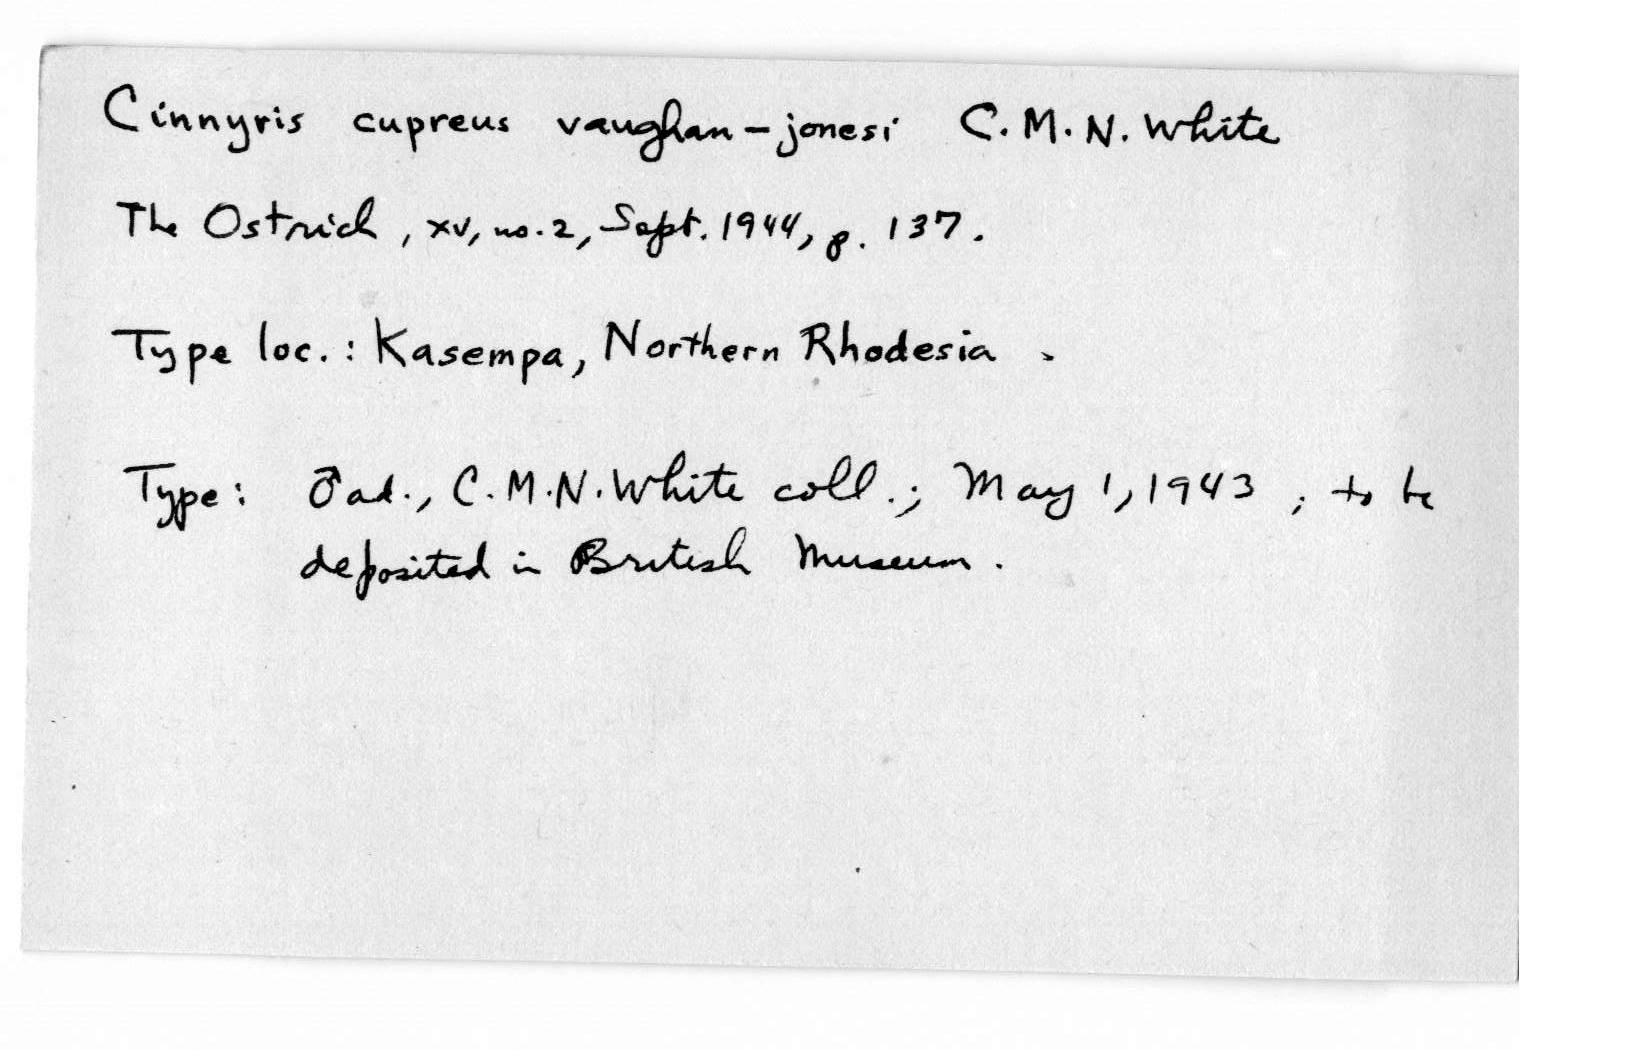 Cinnyris cupreus vaughan-jonesi C.M.N. White
The Ostrich, xv, no. 2, Sept. 1944, p. 137.
Type loc.: Kasempa, Northern Rhodesia.
Type: ♂ ad., C.M.N. White coll.; May 1, 1943; to be
deposited in British Museum.